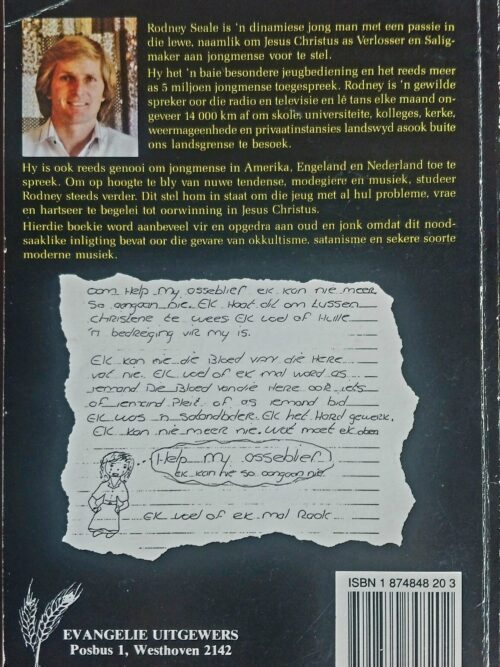 Rodney Seale is 'n dinamiese jong man met een passie in
die lewe, naamlik om Jesus Christus as Verlosser en Salig-
maker aan jongmense voor te stel.
Hy het 'n baie besondere jeugbediening en het reeds meer
as 5 miljoen jongmense toegespreek. Rodney is 'n gewilde
spreker oor die radio en televisie en lê tans elke maand on-
geveer 14 000 km af om skole, universiteite, kolleges, kerke,
weermageenhede en privaatinstansies landswyd asook buite
ons landsgrense te besoek.
Hy is ook reeds genooi om jongmense in Amerika, Engeland en Nederland toe te
spreek. Om op hoogte te bly van nuwe tendense, modegiere en musiek, studeer
Rodney steeds verder. Dit stel hom in staat om die jeug met al hul probleme, vrae
en hartseer te begelei tot oorwinning in Jesus Christus.
Hierdie boekie word aanbeveel vir en opgedra aan oud en jonk omdat dit nood-
saaklike inligting bevat oor die gevare van okkultisme, satanisme en sekere soorte
moderne musiek.
oom. Help my asseblief ek kan nie meer
so aangaan nie. Ek haat dit om tussen
christene te wees Ek voel of hulle
'n bedreiging vir my is.
Ek kan nie die Bloed van die Here
vat nie. Ek voel of ek mal word as
iemand Die Bloed van die Here ook iets
of iemand Pleit of as iemand bid
Ek was 'n satanbidder. Ek het Hard gewerk.
Ek kan nie meer nie. Wat moet ek doen
Help my asseblief
ek kan nie so aangaan nie.
Ek voel of ek mal Raak
EVANGELIE UITGEWERS
Posbus 1, Westhoven 2142
ISBN 1 874848 20 3